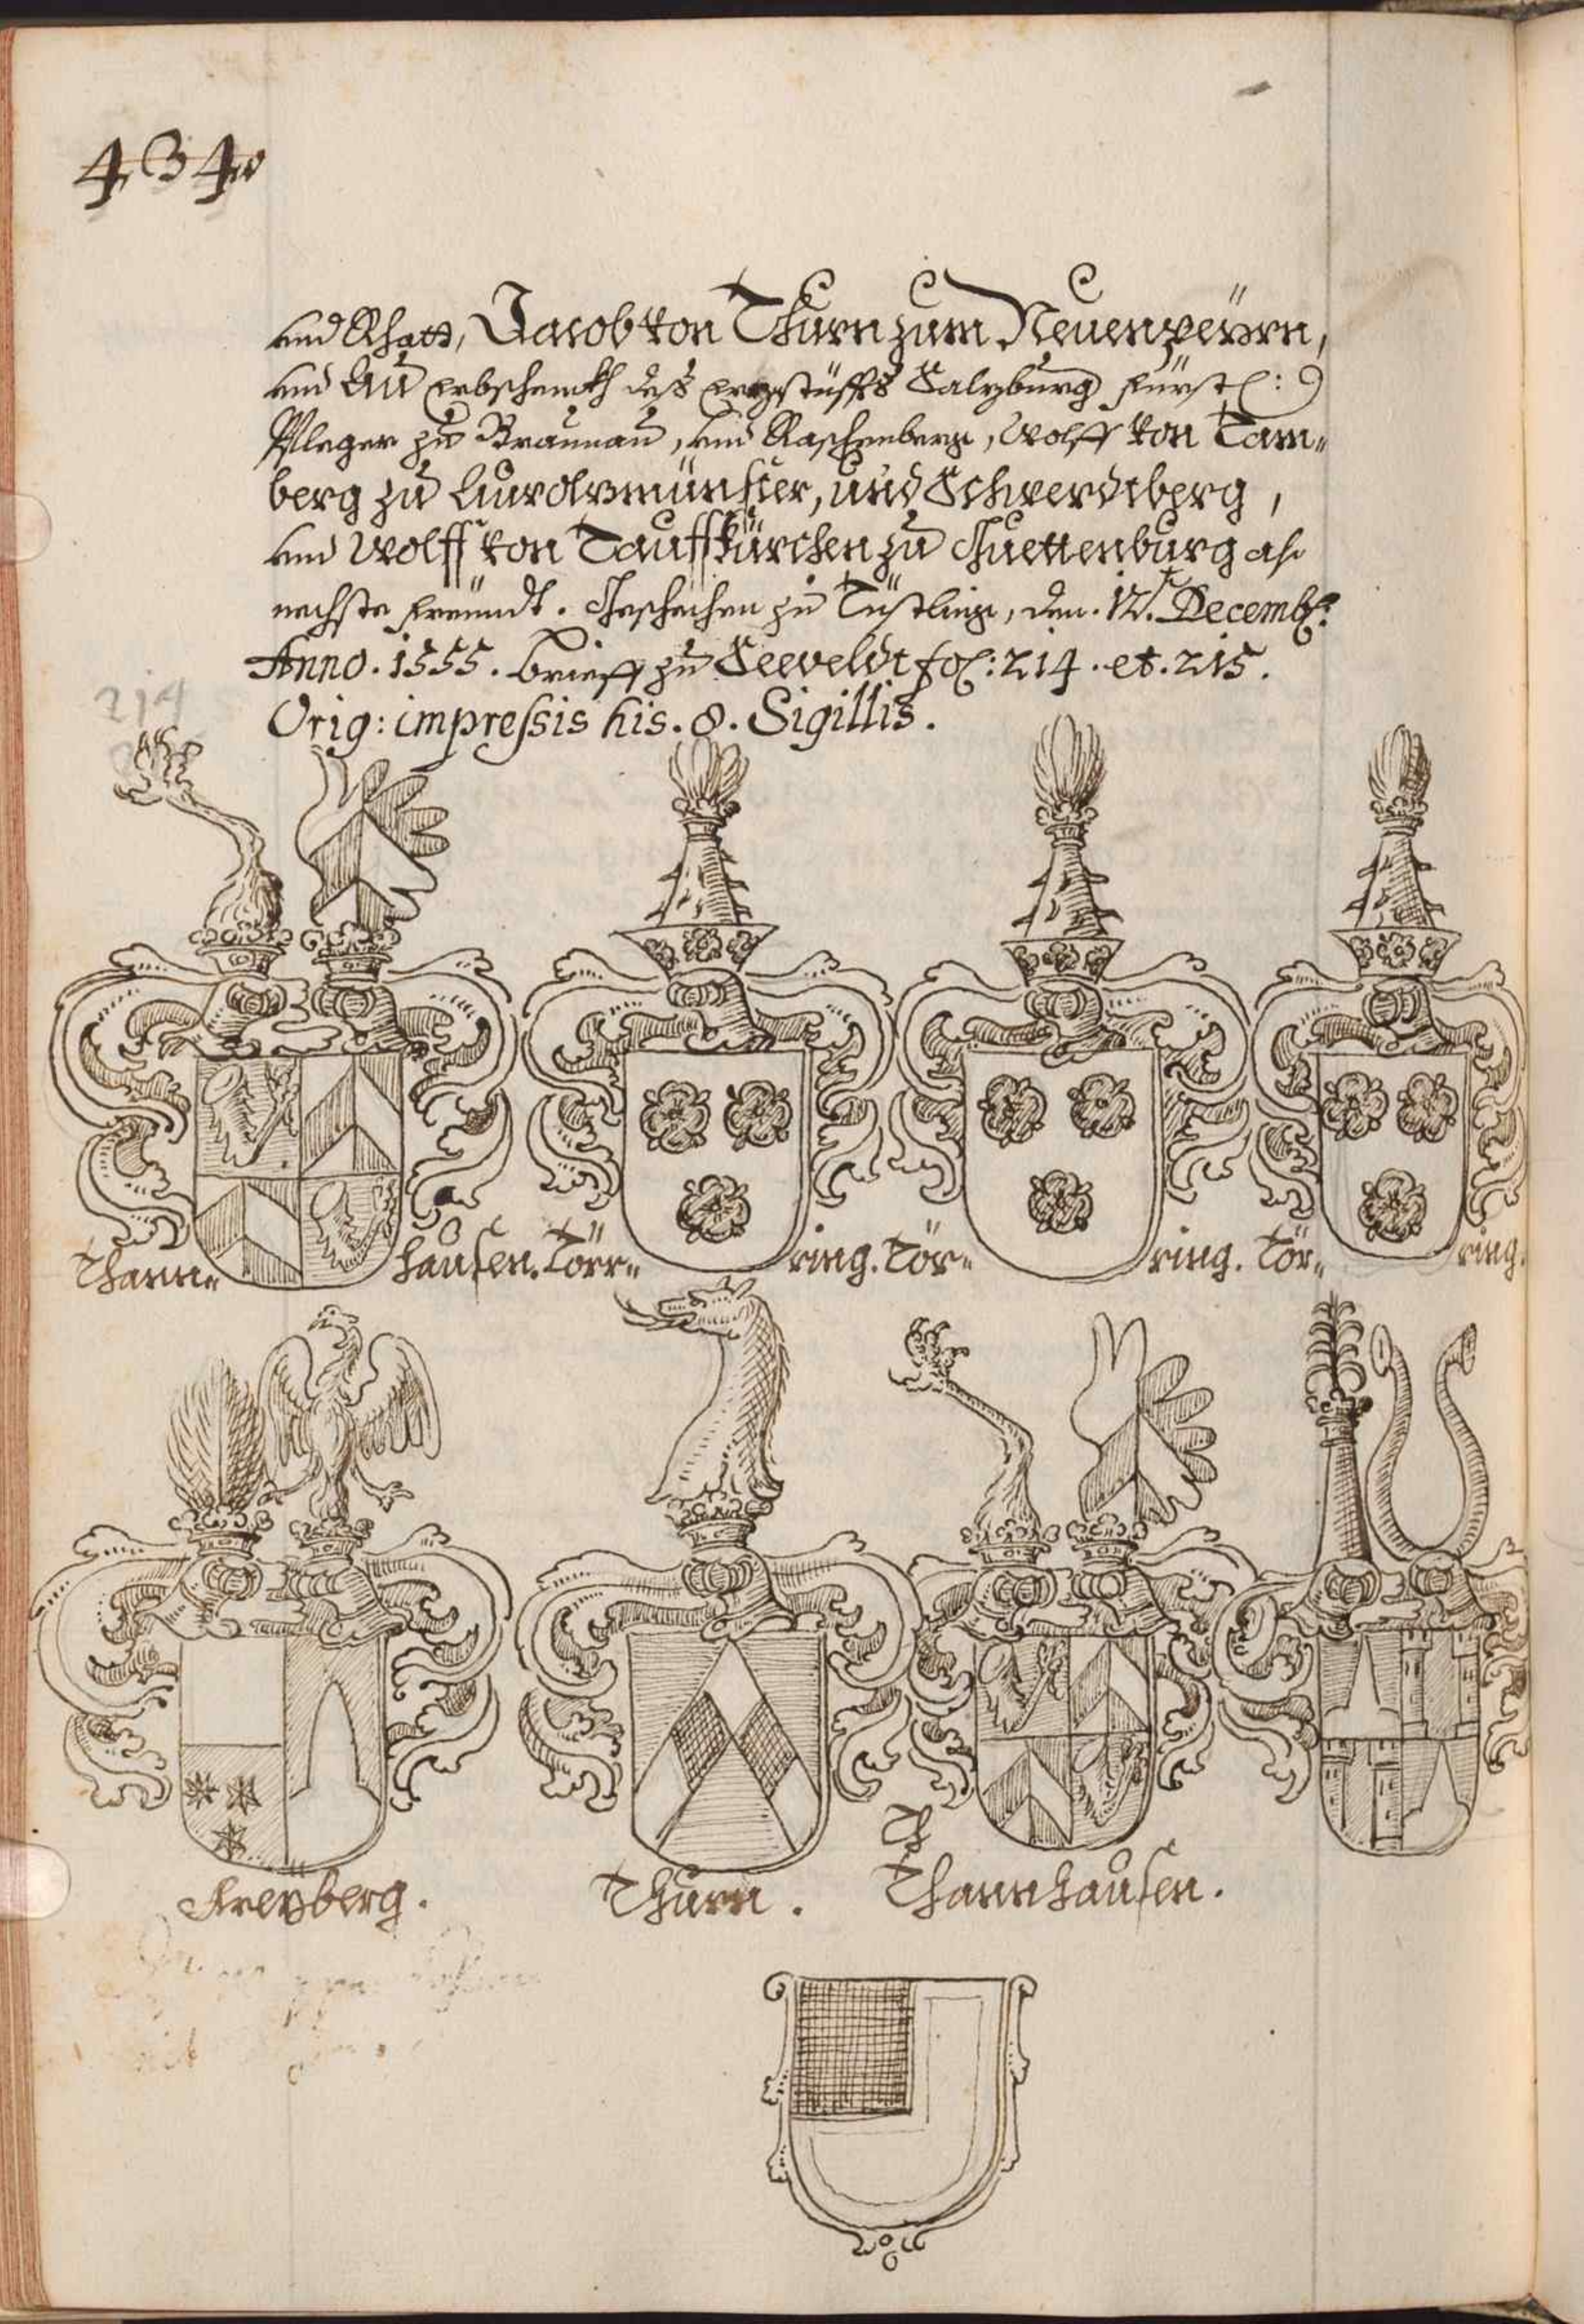 434.
und Rhatt, Jacob von Thurn zum Neuenpeÿrn,
und Au erbschenckh deß erzstüffts Salzburg fürstl:
Pfleger zu Braunau, und Raschenberg, Wolff von Tam-
berg zu Aurolzmünster, und Schwerdtberg,
und Wolff von Tauffkürchen zu Guettenburg als
nechste freündt. Geschechen zu Tüstling, den. 12. Decemb:
Anno. 1555. brieff zu Seeveldt fol: 214. et. 215.
214
Orig: impressis his. 8. Sigillis.
Thann- hausen. Törr- ring. Tör- ring. Tör- ring.
Th
Freyberg. Thurn. Thannhausen.